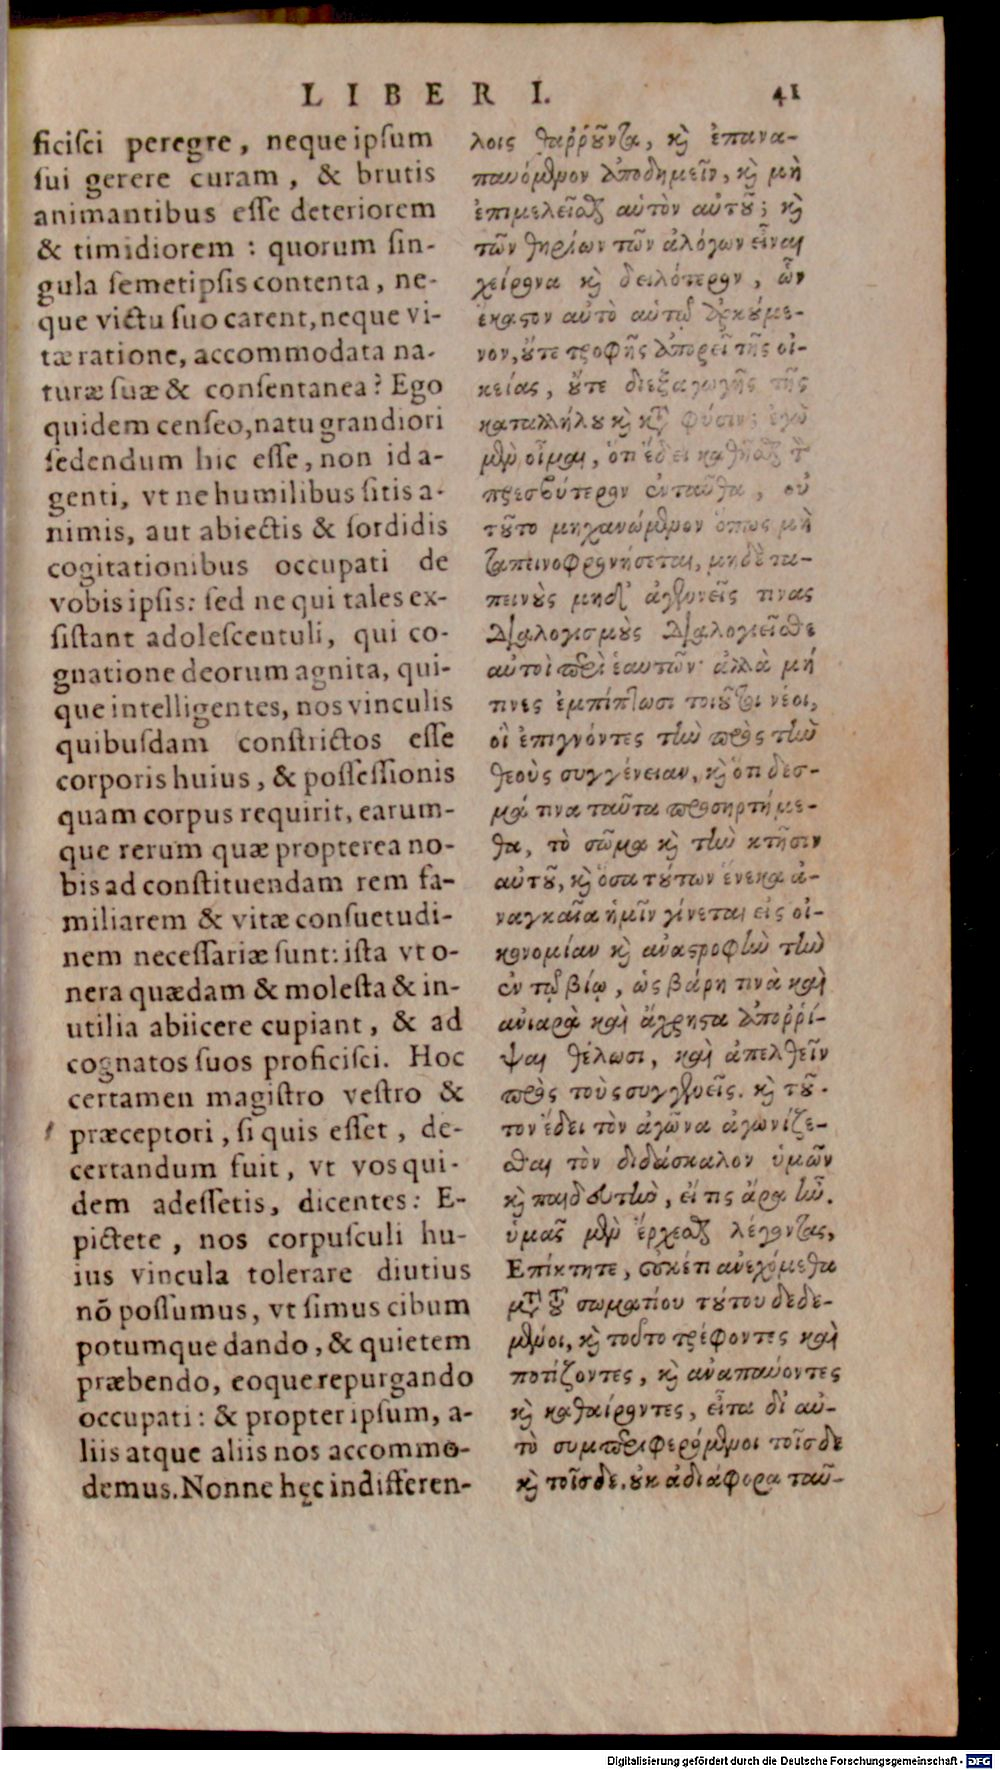 LIBER I. 41
ficisci peregre, neque ipsum
sui gerere curam, & brutis
animantibus esse deteriorem
& timidiorem : quorum sin-
gula semetipsis contenta, ne-
que victu suo carent, neque vi-
tæ ratione, accommodata na-
turæ suæ & consentanea? Ego
quidem censeo, natu grandiori
sedendum hic esse, non id a-
genti, vt ne humilibus sitis a-
nimis, aut abiectis & sordidis
cogitationibus occupati de
vobis ipsis: sed ne qui tales ex-
sistant adolescentuli, qui co-
gnatione deorum agnita, qui-
que intelligentes, nos vinculis
quibusdam constrictos esse
corporis huius, & possessionis
quam corpus requirit, earum-
que rerum quæ propterea no-
bis ad constituendam rem fa-
miliarem & vitæ consuetudi-
nem necessariæ sunt: ista vt o-
nera quædam & molesta & in-
utilia abiicere cupiant, & ad
cognatos suos proficisci. Hoc
certamen magistro vestro &
præceptori, si quis esset, de-
certandum fuit, vt vos qui-
dem adessetis, dicentes: E-
pictete, nos corpusculi hu-
ius vincula tolerare diutius
nō possumus, vt simus cibum
potumque dando, & quietem
præbendo, eoque repurgando
occupati: & propter ipsum, a-
liis atque aliis nos accommo-
demus. Nonne hęc indifferen-
λοις θαῤῥοῦντα, καὶ ἐπανα-
παυόμενον ἀποδημεῖν, καὶ μὴ
ἐπιμελεῖσθαι αὐτὸν αὑτοῦ; καὶ
τῶν θηρίων τῶν ἀλόγων εἶναι
χείρονα καὶ δειλότερον, ὧν
ἕκαστον αὐτὸ αὑτῷ ἀρκούμε-
νον, οὔτε τροφῆς ἀπορεῖ τῆς οἰ-
κείας, οὔτε διεξαγωγῆς τῆς
καταλλήλου καὶ κατὰ φύσιν; ἐγὼ
μὲν οἶμαι, ὅτι ἔδει καθῆσθαι τὸν
πρεσβύτερον ἐνταῦθα, οὐ
τοῦτο μηχανώμενον ὅπως μὴ
ταπεινοφρονήσεται, μηδὲ τα-
πεινοὺς μηδ' ἀγεννεῖς τινας
διαλογισμοὺς διαλογιεῖσθε
αὐτοὶ περὶ ἑαυτῶν· ἀλλὰ μή
τινες ἐμπίπτωσι τοιοῦτοι νέοι,
οἳ ἐπιγνόντες τὴν πρὸς τὴν
θεοὺς συγγένειαν, καὶ ὅτι δεσ-
μά τινα ταῦτα προσηρτήμε-
θα, τὸ σῶμα καὶ τὴν κτῆσιν
αὐτοῦ, καὶ ὅσα τούτων ἕνεκα ἀ-
ναγκαῖα ἡμῖν γίνεται εἰς οἰ-
κονομίαν καὶ ἀναστροφὴν τὴν
ἐν τῷ βίῳ, ὡς βάρη τινὰ καὶ
ἀνιαρὰ καὶ ἄχρηστα ἀποῤῥί-
ψαι θέλωσι, καὶ ἀπελθεῖν
πρὸς τοὺς συγγενεῖς. καὶ τοῦ-
τον ἔδει τὸν ἀγῶνα ἀγωνίζε-
σθαι τὸν διδάσκαλον ὑμῶν
καὶ παιδευτὴν, εἴ τις ἄρα ἦν.
ὑμᾶς μὲν ἔρχεσθαι λέγοντας,
Ἐπίκτητε, οὐκέτι ἀνεχόμεθα
μετὰ τοῦ σωματίου τούτου δεδε-
μένοι, καὶ τοῦτο τρέφοντες καὶ
ποτίζοντες, καὶ ἀναπαύοντες
καὶ καθαίροντες, εἶτα δι' αὐ-
τὸ συμπεριφερόμενοι τοῖσδε
καὶ τοῖσδε. οὐκ ἀδιάφορα ταῦ-
Digitalisierung gefördert durch die Deutsche Forschungsgemeinschaft - DFG